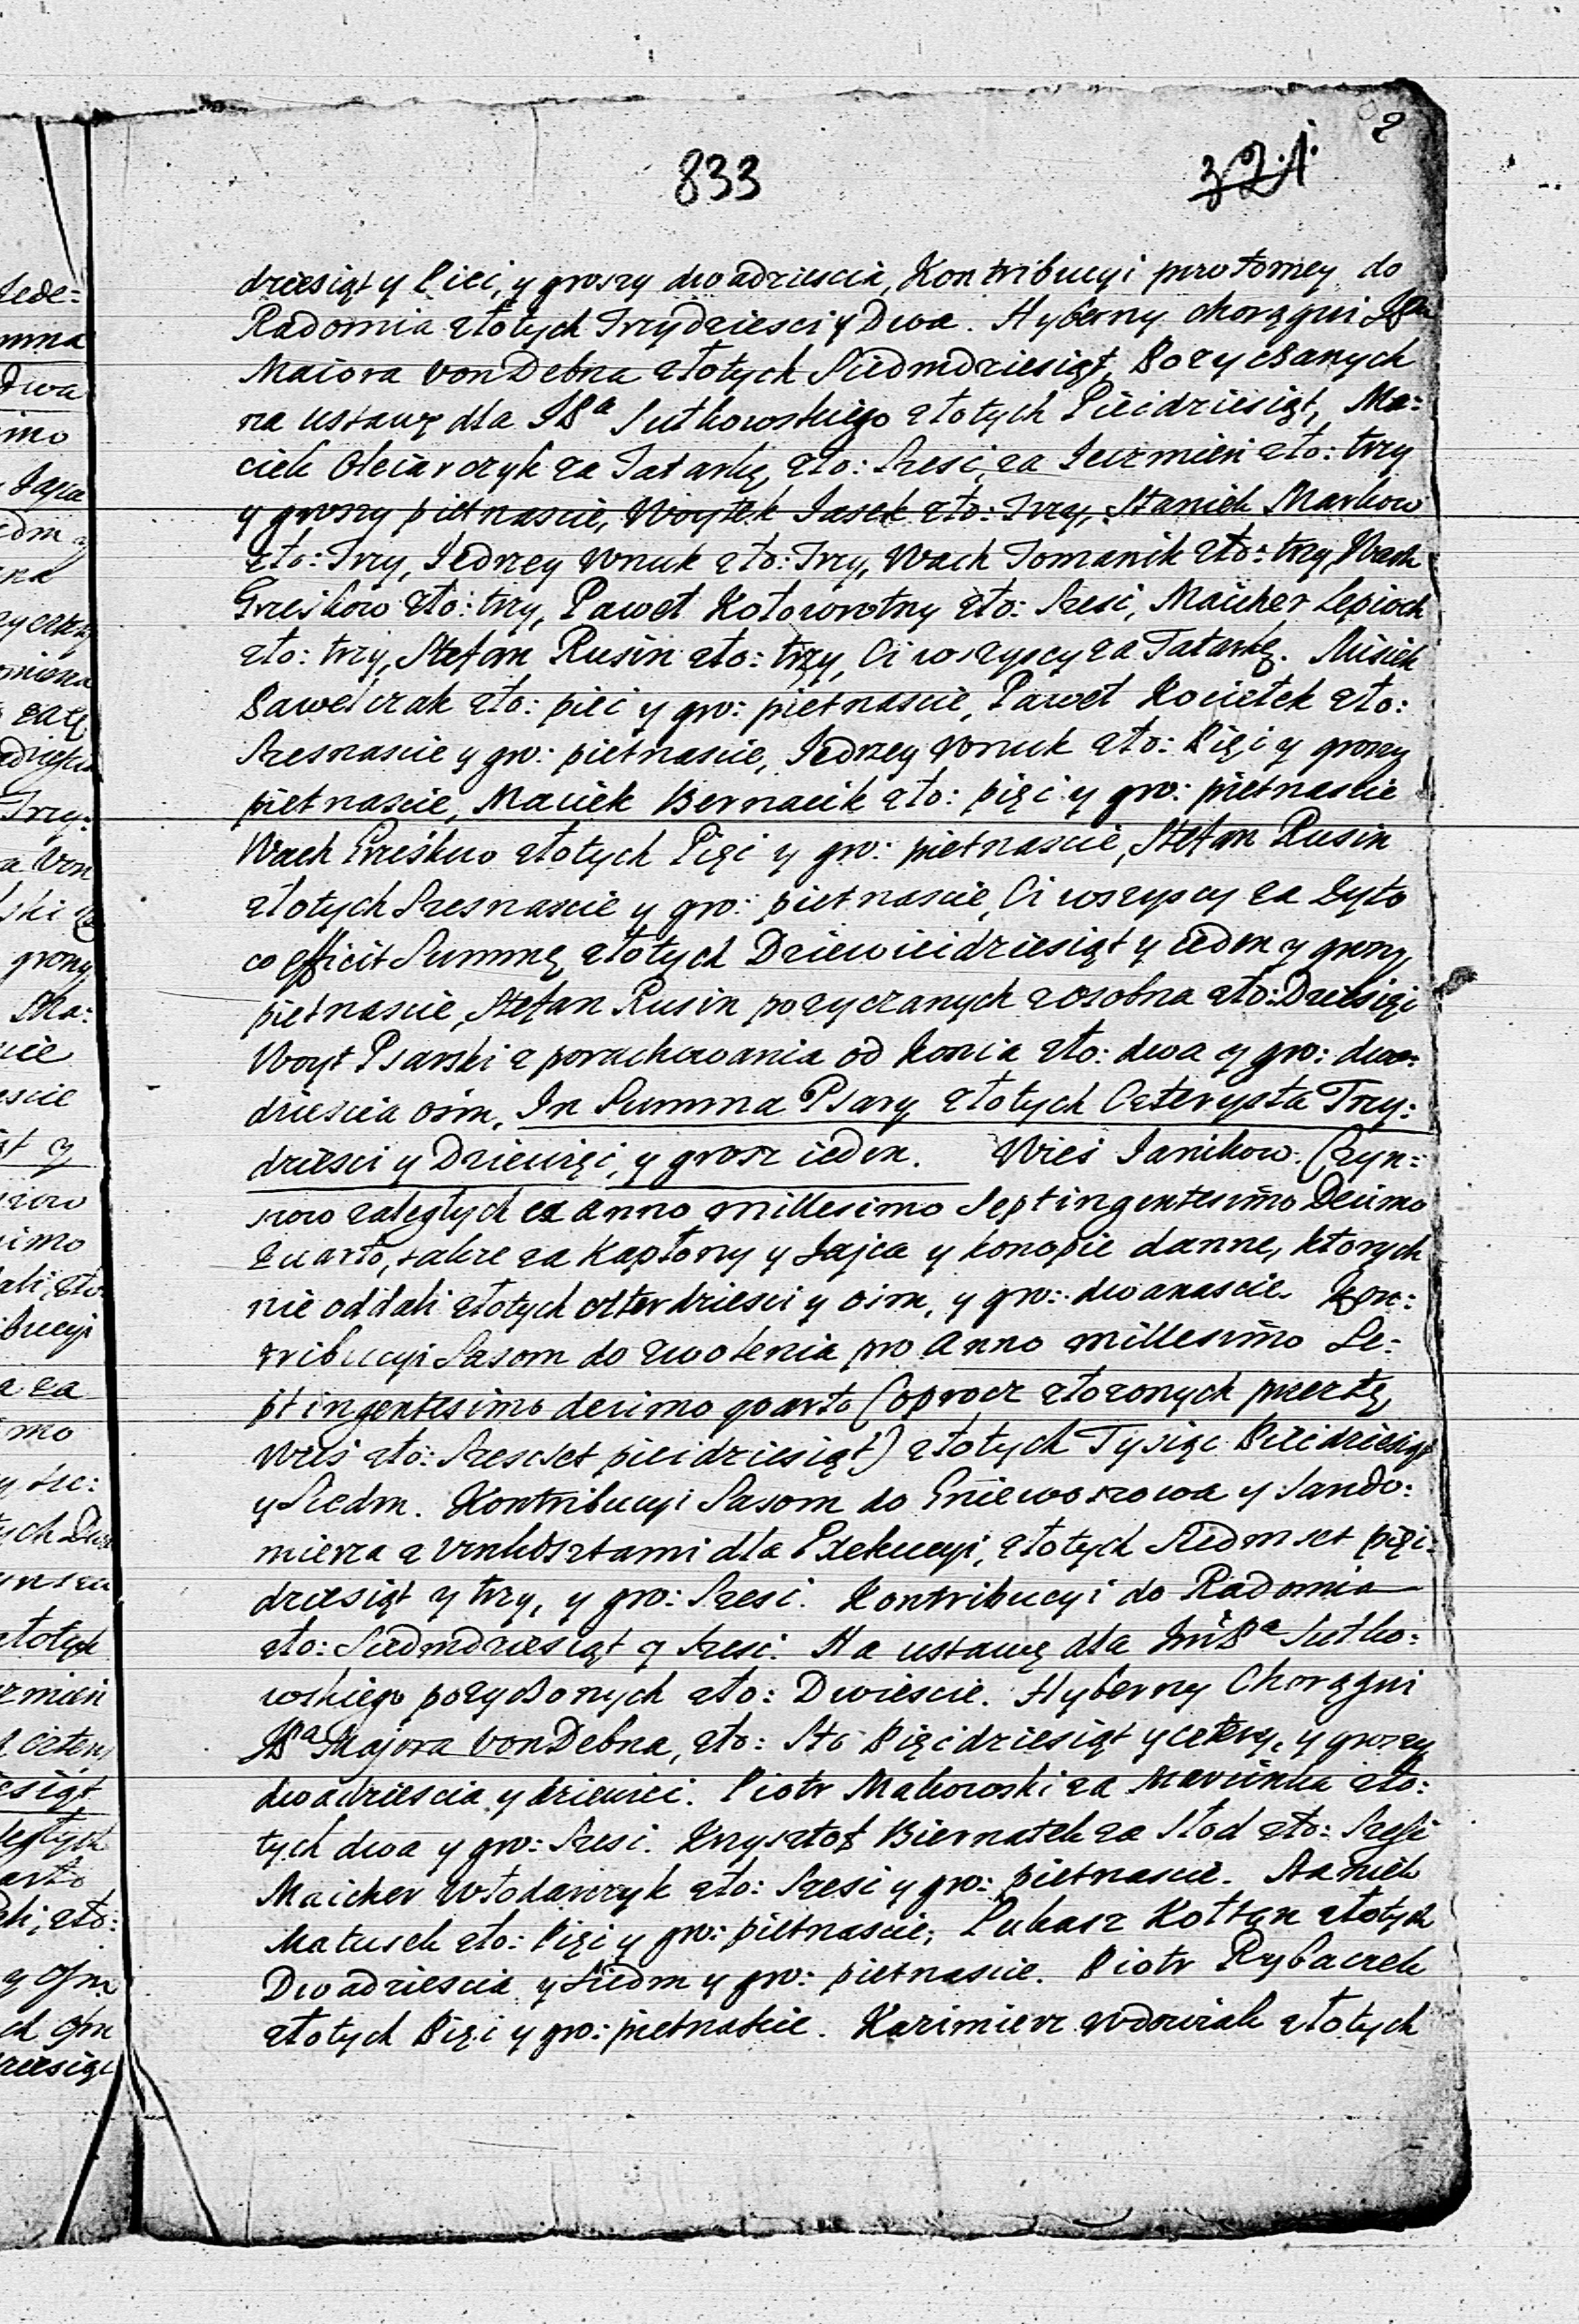 833
321
2
dziesiąt y Pięć, y groszy dwadziescia, Kontribucyi powtorney do
Radomia złotych Trzydziesci y Dwa. Hyberny chorągwi JPa
Maiora von Debna złotych Siedmdziesiąt, Pozyczanych
na ustawę dla JPa Sutkowskiego złotych Piecidziesiąt, Ma:
ciek Oleiarczyk za Tatarkę, zło: Szesc, za Jeczmien zło: trzy
y groszy pietnascie, Woytek Jasek zło: Trzy, Staniek Markow
zło: Trzy, Jedrzey Wnuk zło: Trzy, Wach Tomanik zło: trzy, Wach
Grześkow zło: trzy, Paweł Kołowrotny zło: Szesc, Maicher Lepioch
zło: trzy, Stefan Rusin zło: trzy, Ci wszyscy za Tatarkę. Misiek
Pawelczak zło: pięc y gro: pietnascie, Paweł Kociełek zło:
Szesnascie y gro: pietnascie, Jedrzey Wnuk zło: Pięc y groszy
pietnascie, Maciek Bernacik zło: pięc y gro: pietnascie
Wach Grześkow złotych Pięc y gro: pietnascie, Stefan Rusin
złotych Szesnascie y gro: pietnascie, Ci wszyscy za Zyto
co efficit Summę złotych Dziewiecidziesiąt y ieden y groszy
pietnascie, Stefan Rusin pozyczanych zosobna zło: Dziesięc
Woyt Psarski z porachowania od konia zło: dwa y gro: dwa:
dziescia osm, In Summa Psary złotych Czterysta Trzy:
dziesci y Dziewięc, y grosz ieden. Wies Janikow. Czyn:
szow zaległych ex anno millesimo Septingentesimo Decimo
Quarto, takze za Kapłony y Jajca y konopie danne, ktorych
nie oddali złotych czterdziesci y osm, y gro: dwanascie. Kon:
tribucyi Sasom do zwolenia pro Anno millesimo Se:
ptingentesimo decimo quarto (oprocz złozonych przez tę
Wieś zło: Szescset piecidziesiąt) złotych Tysiąc Piecidziesiąt
y Siedm. Kontribucyi Sasom do Gniewoszowa y Sando:
mierza z unkosztami dla Exekucyi, złotych Siedmset pięc:
dziesiąt y trzy, y gro: Szesc. Kontribucyi do Radomia
zło: Siedmdziesiąt y Szesc. Na ustawę dla ImPa Sutko:
wskiego pozyczonych zło: Dwiescie. Hyberny Chorągwi
JPa Majora von Debna, zło: Sto Pięcdziesiąt y cztery, y groszy
dwadziescia y dziewięc. Piotr Makowski za Marcinka zło:
tych dwa y gro: Szesc. Krzysztof Biernatek za Słod zło: Szesc
Maicher Włodarczyk zło: Szesc y gro: pietnascie. Staniek
Matusek zło: Pięc y gro: pietnascie, Łukasz Kołtan złotych
Dwadziescia y Siedm y gro: pietnascie. Piotr Rybaczek
złotych Pięc y gro: pietnascie. Kazimierz Wdowiak złotych